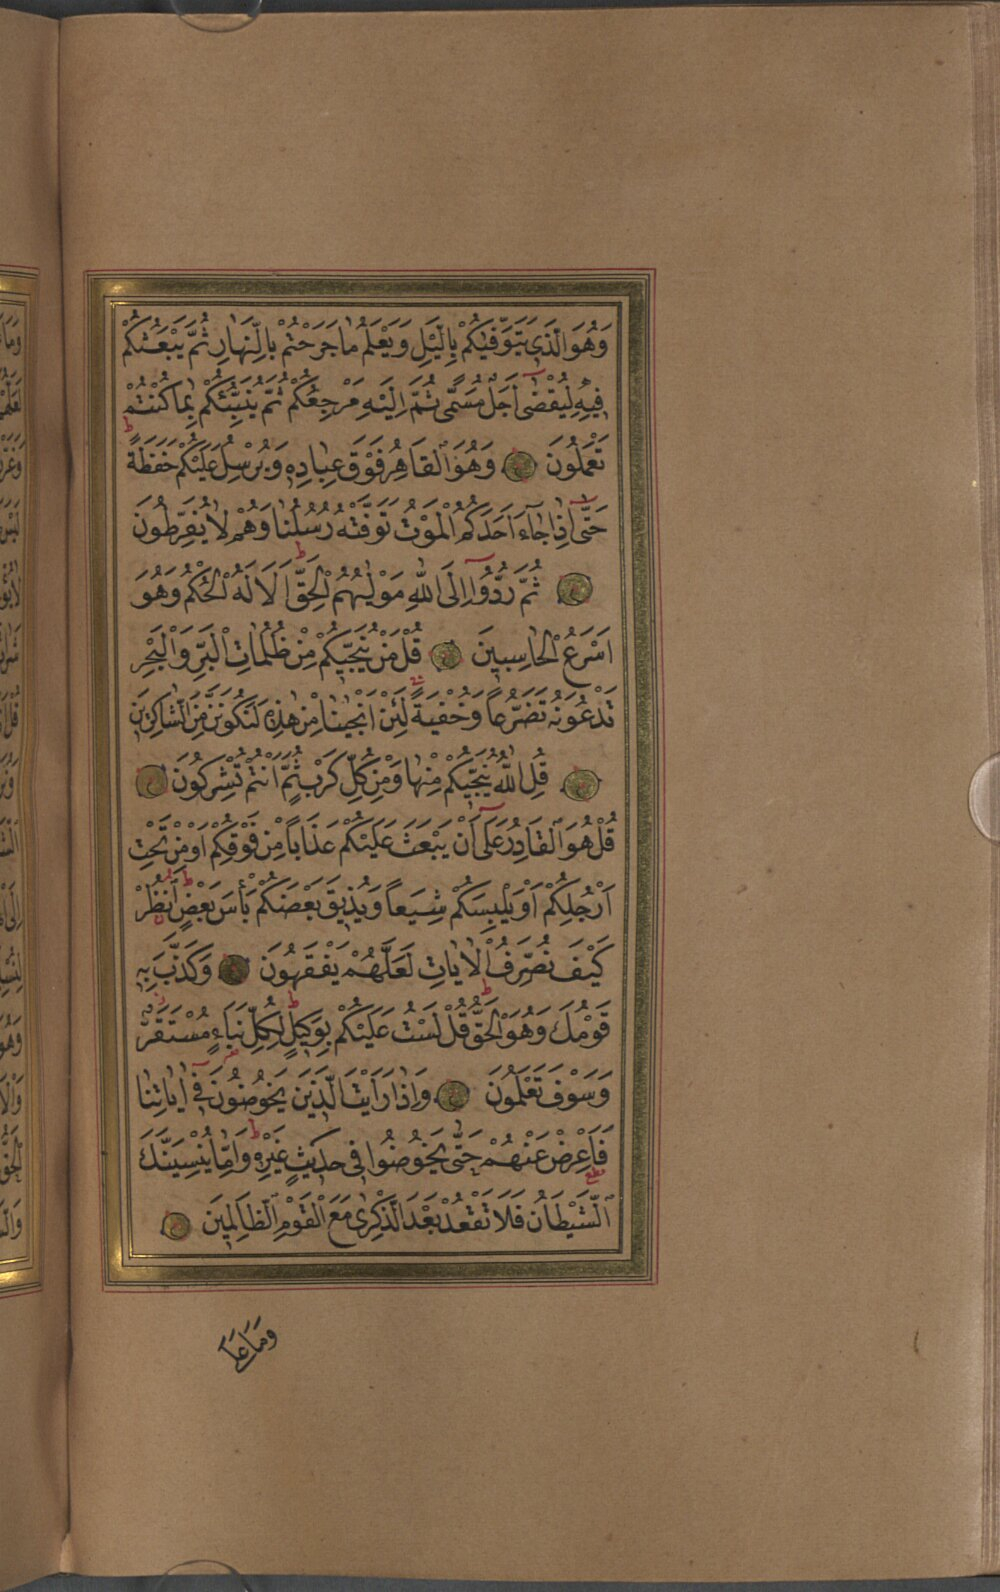 وَهُوَ الَّذٖى يَتَوَفّٰيكُمْ بِالَّيْلِ وَيَعْلَمُ مَا جَرَحْتُمْ بِالنَّهَارِ ثُمَّ يَبْعَثُكُمْ
فٖيهِ لِيُقْضٰى اَجَلٌ مُسَمًّى ثُمَّ اِلَيْهِ مَرْجِعُكُمْ ثُمَّ يُنَبِّئُكُمْ بِمَا كُنْتُمْ
تَعْمَلُونَ وَهُوَ الْقَاهِرُ فَوْقَ عِبَادِهٖ وَيُرْسِلُ عَلَيْكُمْ حَفَظَةً
حَتّٰى اِذَا جَٓاءَ اَحَدَكُمُ الْمَوْتُ تَوَفَّتْهُ رُسُلُنَا وَهُمْ لَا يُفَرِّطُونَ
ثُمَّ رُدُّٓوا اِلَى اللّٰهِ مَوْلٰيهُمُ الْحَقِّ اَلَا لَهُ الْحُكْمُ وَهُوَ
اَسْرَعُ الْحَاسِبٖينَ قُلْ مَنْ يُنَجّٖيكُمْ مِنْ ظُلُمَاتِ الْبَرِّ وَالْبَحْرِ
تَدْعُونَهُ تَضَرُّعًا وَخُفْيَةً لَئِنْ اَنْجٰينَا مِنْ هٰذِهٖ لَنَكُونَنَّ مِنَ الشَّاكِرٖينَ
قُلِ اللّٰهُ يُنَجّٖيكُمْ مِنْهَا وَمِنْ كُلِّ كَرْبٍ ثُمَّ اَنْتُمْ تُشْرِكُونَ
قُلْ هُوَ الْقَادِرُ عَلٰٓى اَنْ يَبْعَثَ عَلَيْكُمْ عَذَابًا مِنْ فَوْقِكُمْ اَوْ مِنْ تَحْتِ
اَرْجُلِكُمْ اَوْ يَلْبِسَكُمْ شِيَعًا وَيُذٖيقَ بَعْضَكُمْ بَأْسَ بَعْضٍ اُنْظُرْ
كَيْفَ نُصَرِّفُ الْاٰيَاتِ لَعَلَّهُمْ يَفْقَهُونَ وَكَذَّبَ بِهٖ
قَوْمُكَ وَهُوَ الْحَقُّ قُلْ لَسْتُ عَلَيْكُمْ بِوَكٖيلٍ لِكُلِّ نَبَاٍ مُسْتَقَرٌّ
وَسَوْفَ تَعْلَمُونَ وَاِذَا رَاَيْتَ الَّذٖينَ يَخُوضُونَ فٖٓى اٰيَاتِنَا
فَاَعْرِضْ عَنْهُمْ حَتّٰى يَخُوضُوا فٖى حَدٖيثٍ غَيْرِهٖ وَاِمَّا يُنْسِيَنَّكَ
الشَّيْطَانُ فَلَا تَقْعُدْ بَعْدَ الذِّكْرٰى مَعَ الْقَوْمِ الظَّالِمٖينَ
وَمَا عَلَى